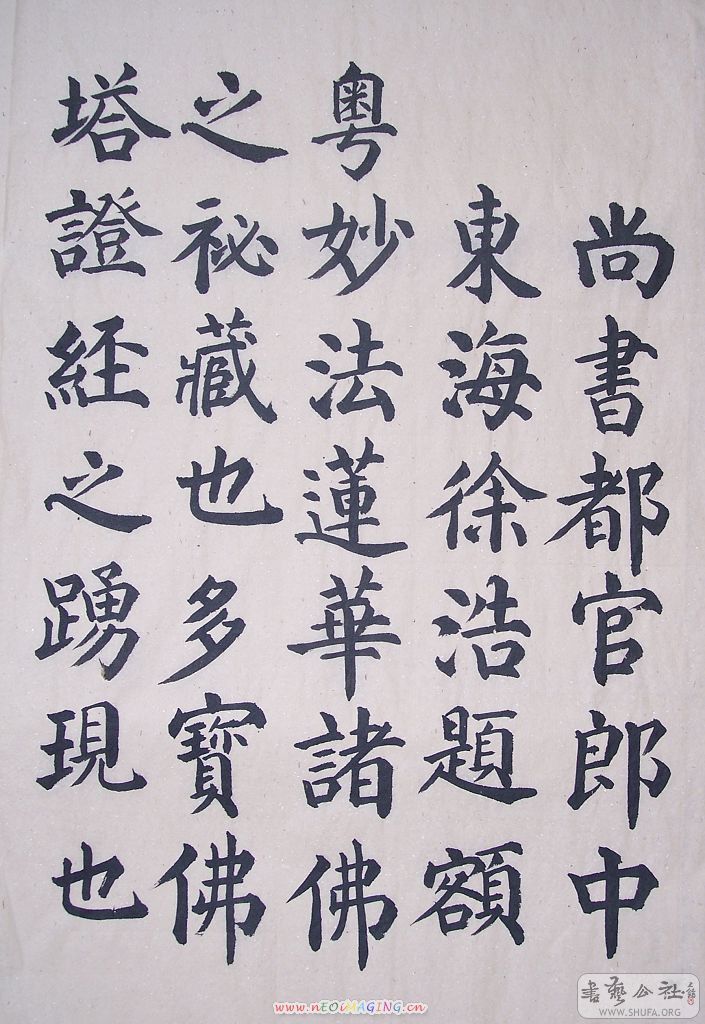 尚書都官郎中
東海徐浩題額
粵妙法蓮華諸佛
之祕藏也多寶佛
塔證經之踴現也
書藝公社
www.SHUFA.ORG
www.nEOiMAGING.cn